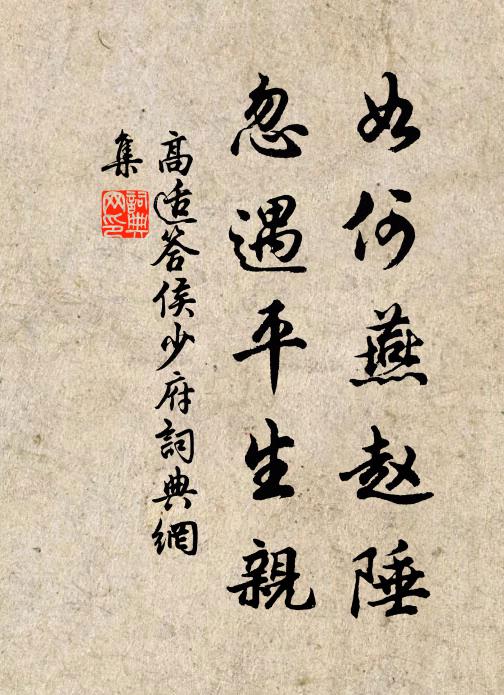 如何燕赵陲
忽遇平生親
高适答侯少府詞典網
集
詞典
网印